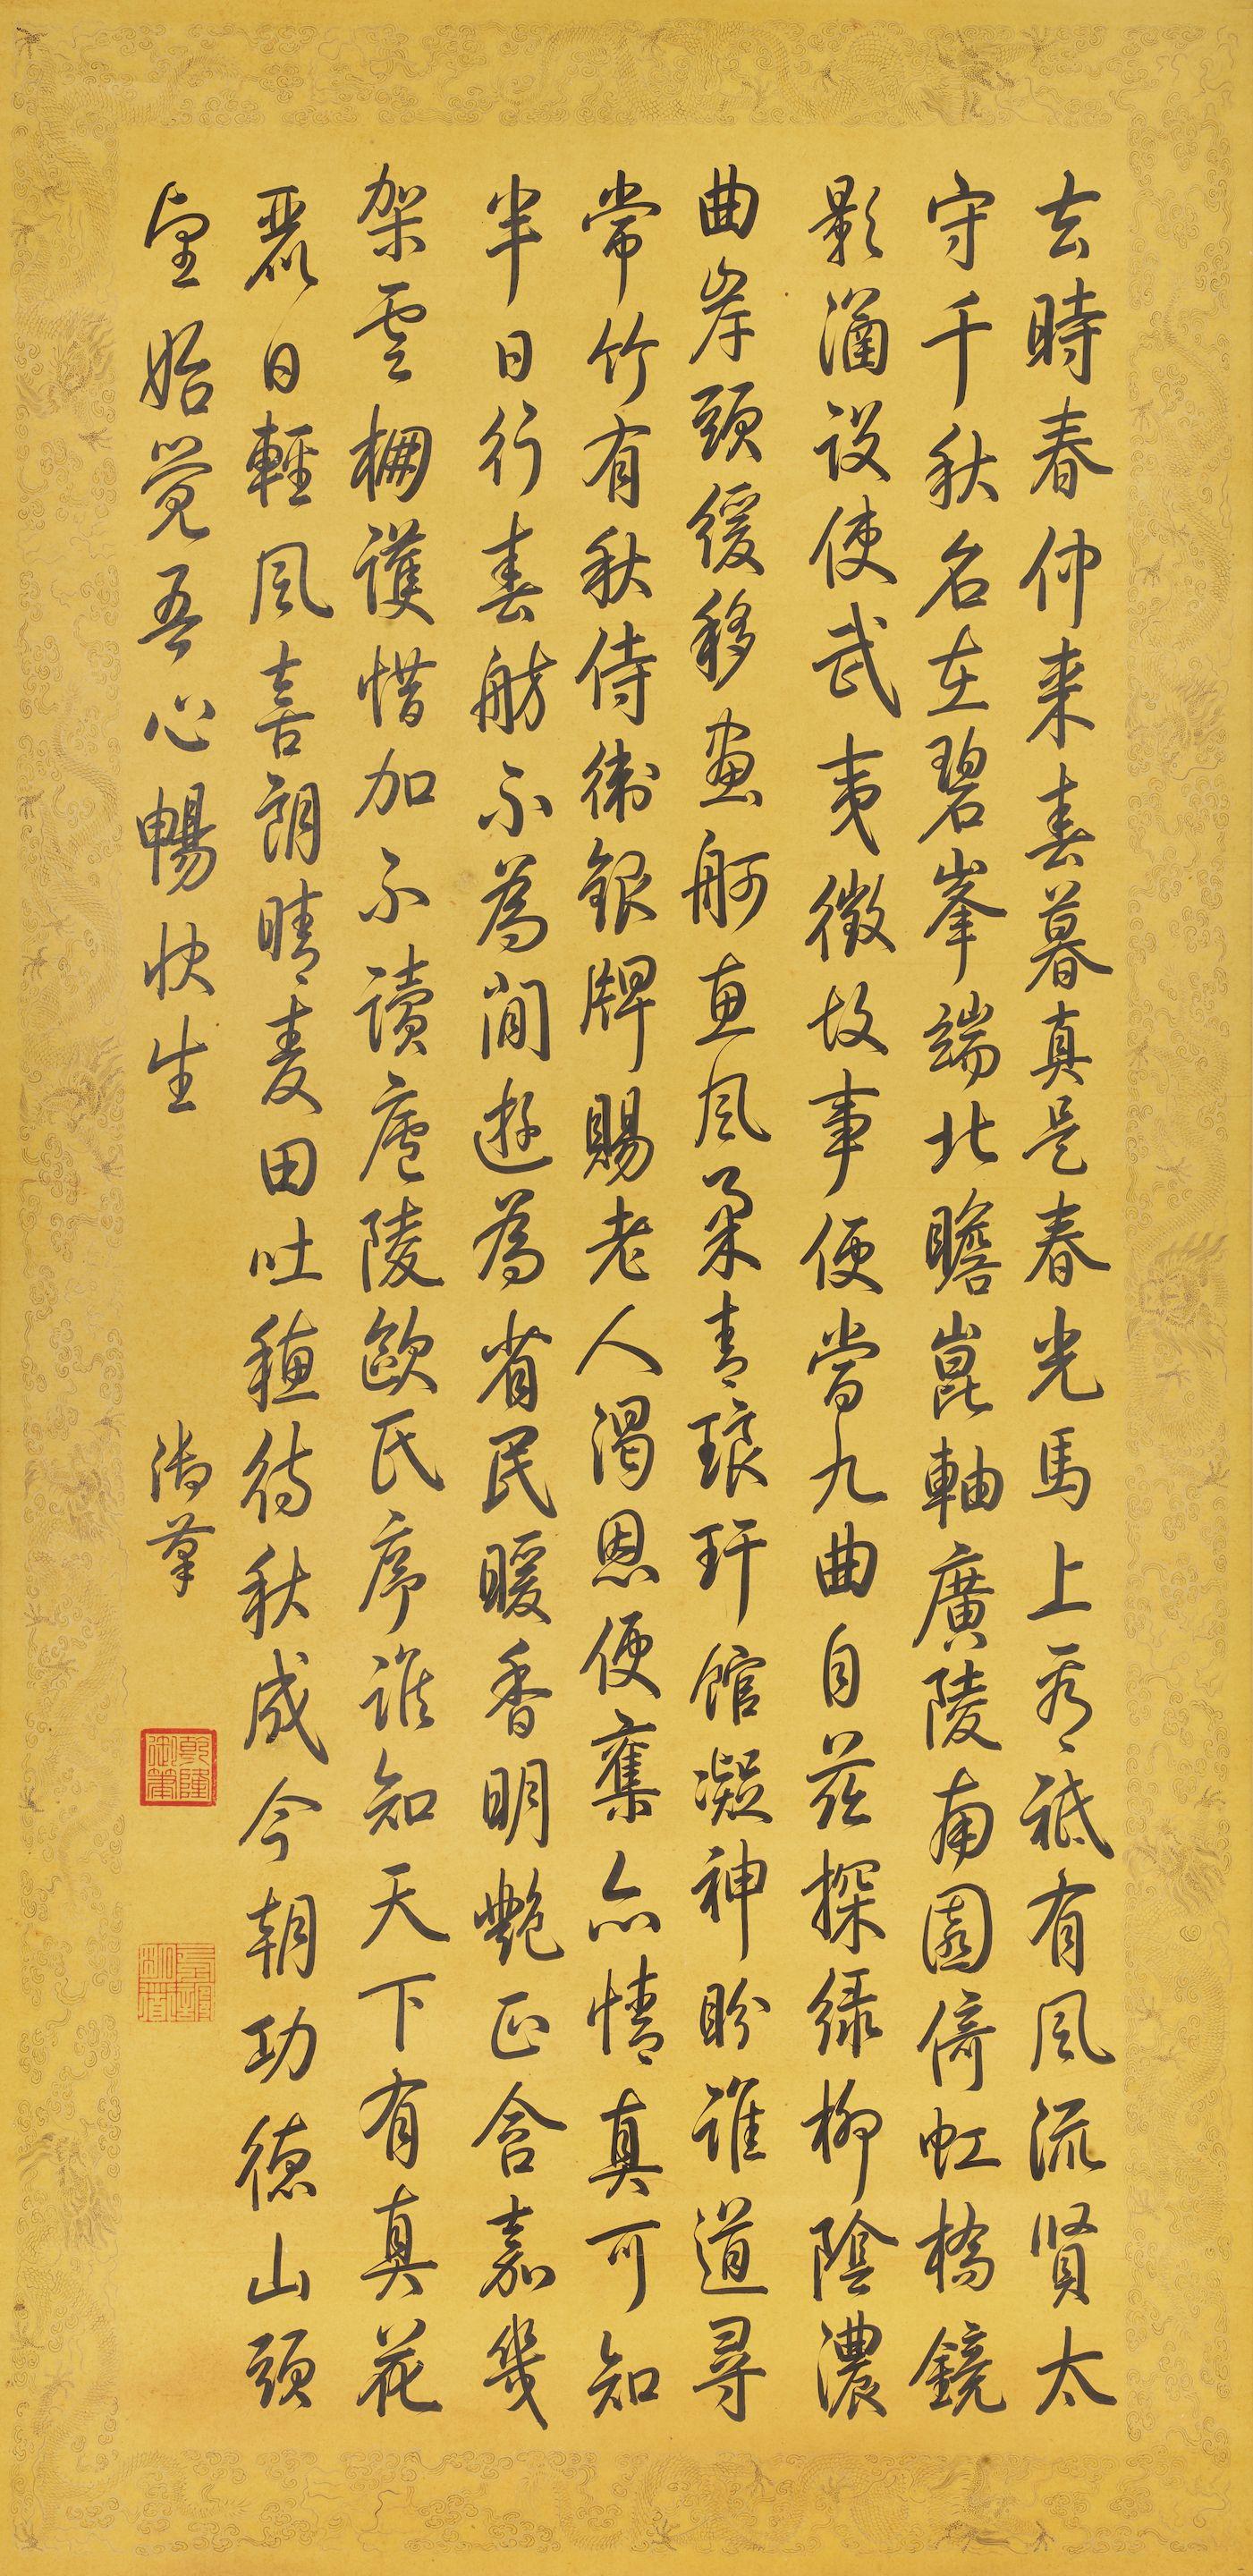 去時春仲来春暮真是春光馬上看祗有風流賢太
守千秋名在碧峯端北瞻崑軸廣陵南園倚虹橋鏡
影涵設使武夷徵故事便當九曲自茲探綠柳陰濃
曲岸頭緩移畫舸惠風柔青琅玕館凝神盼誰道尋
常竹有秋侍衛銀牌賜老人渴恩便奪亦情真可知
半日行春舫不為閒遊為省民暖香明艷正含嘉幾
架雲棚護惜加不讀廬陵歐氏序誰知天下有真花
麗日輕風喜朗晴麦田吐穗待秋成今朝功德山頭
望始覺吾心暢快生
御筆
乾隆
御筆